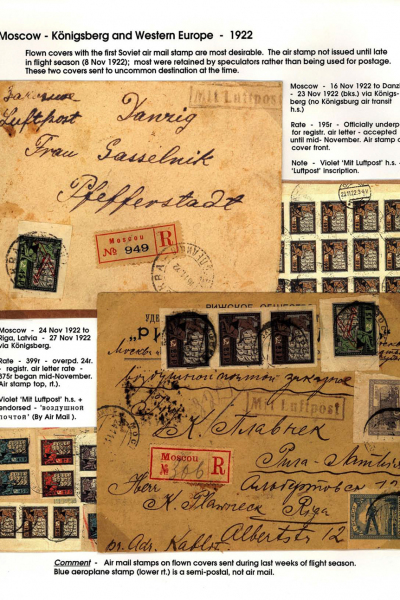 Moscow - Königsberg and Western Europe - 1922
Flown covers with the first Soviet air mail stamp are most desirable. The air stamp not issued until late
in flight season (8 Nov 1922); most were retained by speculators rather than being used for postage.
These two covers sent to uncommon destination at the time.
Moscow - 16 Nov 1922 to Danzi
- 23 Nov 1922 (bks.) via Königs-
berg (no Königsburg air transit
h.s.)
Rate - 195r - Officially underp
for registr. air letter - accepted
until mid- November. Air stamp o
cover front.
Note - Violet 'Mit Luftpost' h.s. +
'Luftpost' inscription.
Mit Luftpost
Luftpost Danzig
Frau Gasselnik
Pfefferstadt
Moscou
№ 949 R
Moscow - 24 Nov 1922 to
Riga, Latvia - 27 Nov 1922
via Königsberg.
Rate - 399r - overpd. 24r.
- registr. air letter rate -
375r began mid-November.
Air stamp top, rt.).
Violet 'Mit Luftpost' h.s. +
endorsed - "воздушной
почтой" (By Air Mail ).
РИЖСКОЕ ОБЩЕСТВО
Москва
Воздушной почтой заказное
Mit Luftpost
К. Плавнек
Moscou
№ 366 R
Рига
Herr Альбертовская 12
K. Plawneck Riga
Albertstr 12
Comment - Air mail stamps on flown covers sent during last weeks of flight season.
Blue aeroplane stamp (lower rt.) is a semi-postal, not air mail.